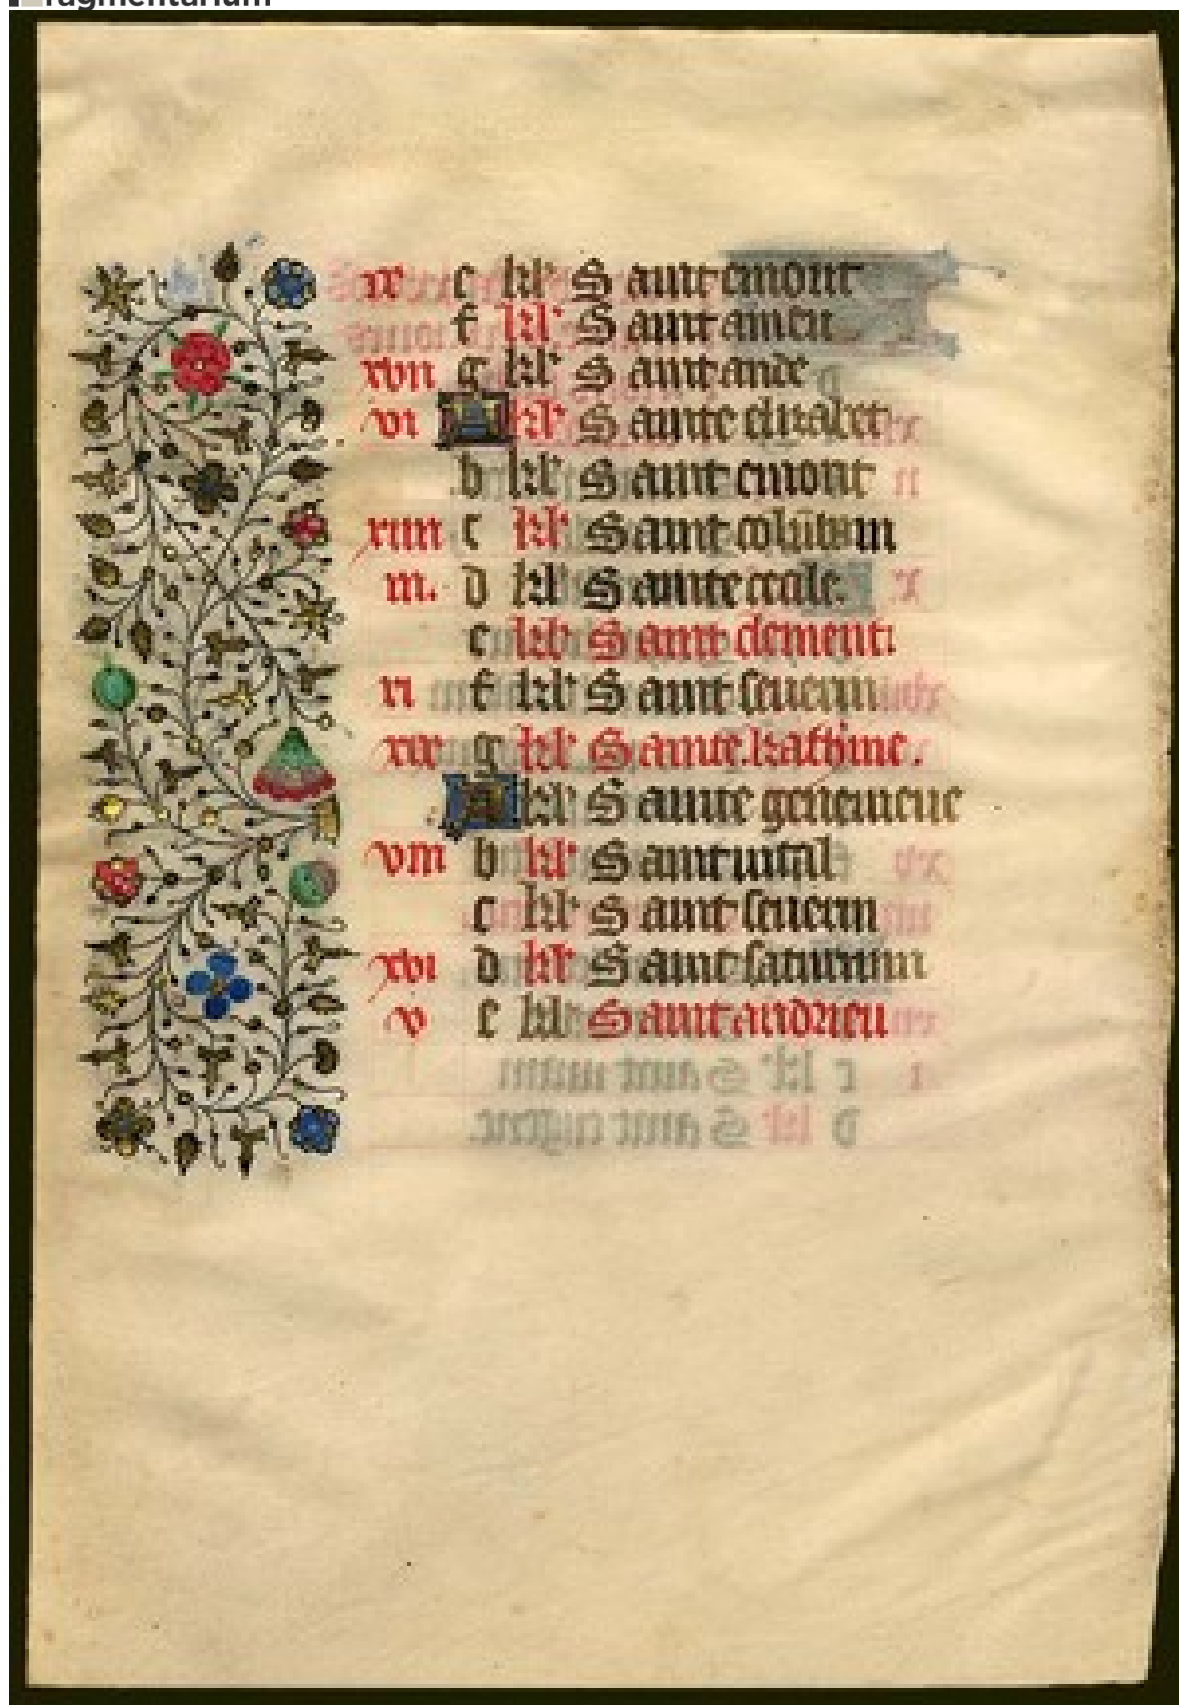 ragmentarium
ix e kl' Saint emont
f kl' Saint amen
xvii g kl' Saint ande
vi A kl' Sainte elizabet
b kl' Saint emont
xiiii c kl' Saint
iii. d kl' Sainte cecile.
e kl' Saint clement.
xi f kl' Saint seuerin
xix g kl' Sainte katherine.
A kl' Sainte geneuieue
viii b kl' Saint uital
c kl' Saint seuerin
xvi d kl' Saint saturnin
v e kl' Saint andrieu